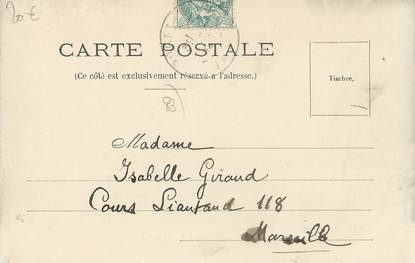 20 €
CARTE POSTALE
(Ce côté est exclusivement réservé à l'adresse.)
Timbre.
83
Madame
Isabelle Giraud
Cours Lieutaud 118
Marseille